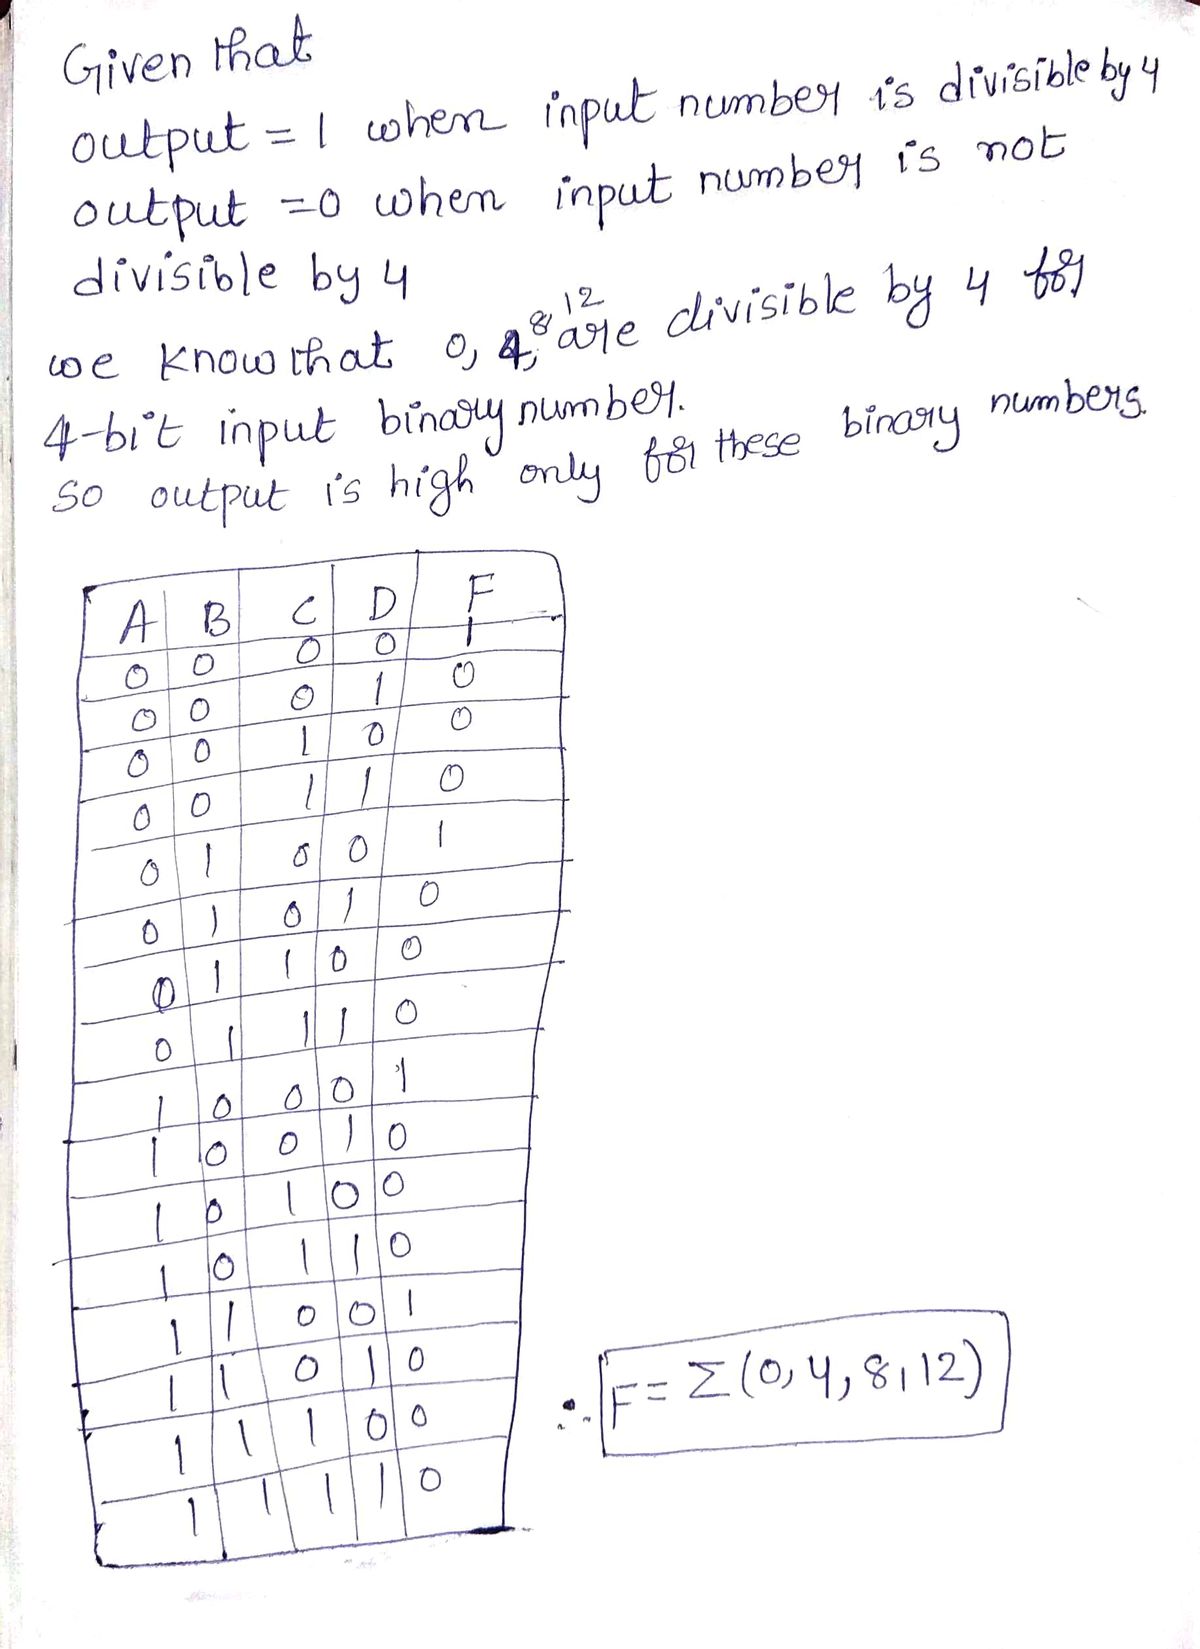 Given that
output = 1 when input number is divisible by 4
output =0 when input number is not
divisible by 4
we know that 0, 4, 8, 12 are divisible by 4 for
4-bit input binary number.
so output is high only for these binary numbers.
A B C D F
0 0 0 0 1
0 0 0 1 0
0 0 1 0 0
0 0 1 1 0
0 1 0 0 1
0 1 0 1 0
0 1 1 0 0
0 1 1 1 0
1 0 0 0 1
1 0 0 1 0
1 0 1 0 0
1 0 1 1 0
1 1 0 0 1
1 1 0 1 0
1 1 1 0 0
1 1 1 1 0
∴ F = Σ(0, 4, 8, 12)